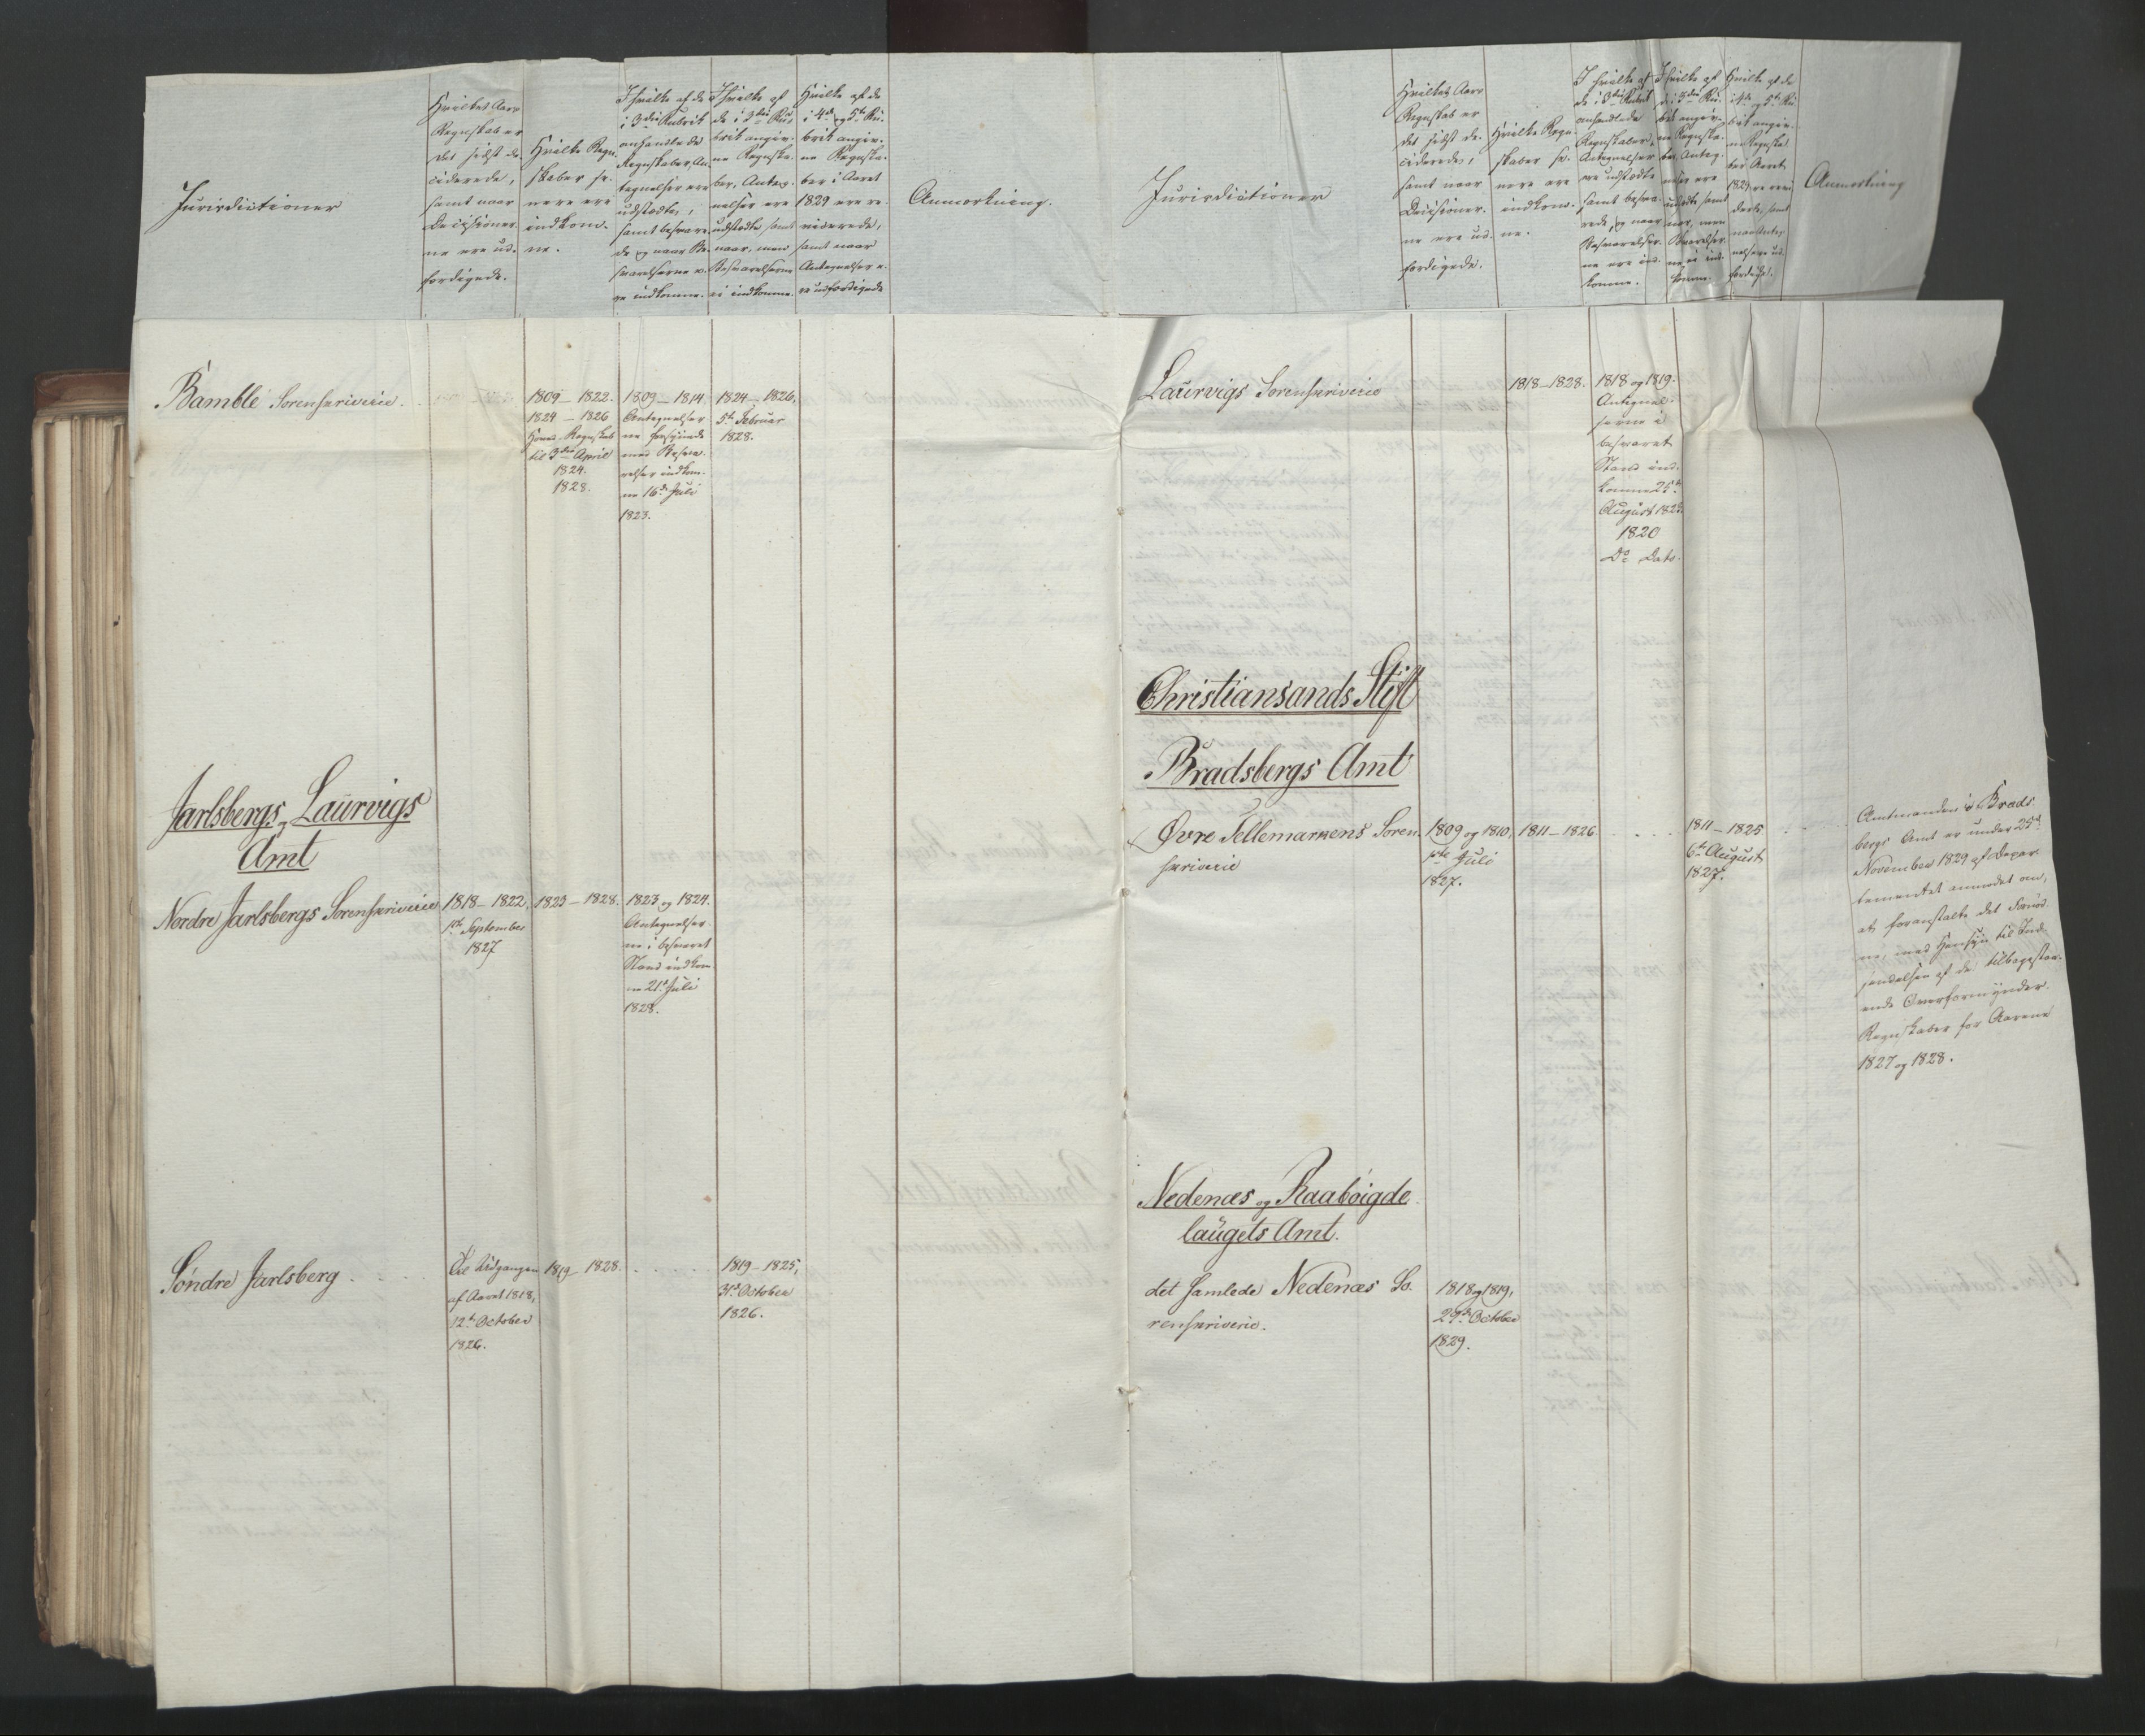 Jurisdictioner
Hvilket Aars
Regnskab er
det sidst de-
ciderede,
samt naar
Decisioner-
ne ere ud-
færdigede.
Hvilke Regn-
skaber se-
nere ere
indkom-
ne.
I hvilke af de
i 3die Rubrik
anhandlede
Regnskaber, An-
tegnelser ere
udstædte,
samt besvare-
de og naar Be-
svarelserne e-
re indkomne.
I hvilke af
de i 3die Ru-
brik angiv-
ne Regnska-
ber, Anteg-
nelser ere
udstædte samt
naar, men
Besvarelserne
ei indkomne.
Hvilke af de
i 4de og 5te Ru-
brik angiv-
ne Regnska-
ber i Aaret
1829 ere re-
viderede,
samt naar
Antegnelser e-
re udfærdigede
Anmærkning.
Bamble Sorenskriverie.
1809 – 1822.
1824 – 1826
Hoved-Regnskab
til 3die April
1824.
1828.
1809 – 1814.
Antegnelser-
ne forsynede
med Besva-
relser indkom-
ne 16de Juli
1823.
1824 – 1826,
5te Februar
1828.
Jarlsbergs og Laurvigs
Amt
Nordre Jarlsbergs Sorenskriverie
1818 – 1822,
1ste September
1827
1823 – 1828.
1823 og 1824.
Antegnelser-
ne i besvaret
Stand indkom-
ne 21de Juli
1828.
Söndre Jarlsberg
Til Udgangen
af Aaret 1818,
12te October
1826.
1819 – 1828.
1819 – 1825,
31te October
1826.
Jurisdictioner
Hvilket Aars
Regnskab er
det sidst de-
ciderede,
samt naar
Decisioner-
ne ere ud-
færdigede.
Hvilke Regn-
skaber se-
nere ere
indkom-
ne.
I hvilke af
de i 3die Rubrik
anhandlede
Regnskaber,
Antegnelser
ere udstædte
samt besva-
rede, og naar
Besvarelser-
ne ere ind-
komne.
I hvilke af
de i 3die Ru-
brik angiv-
ne Regnska-
ber, Anteg-
nelser ere
udstædte, samt
naar, men
Besvarelser-
ne ei ind-
komne.
Hvilke af de
i 4de og 5te Ru-
brik angiv-
ne Regnska-
ber i Aaret
1829 ere revi-
derede, samt
naar Anteg-
nelser ere ud-
færdiget.
Anmærkning
Laurvigs Sorenskriverie
1818 – 1828.
1818 og 1819.
Antegnel-
serne i
besvaret
Stand ind-
komne 25de
August 1823.
1820
Do Dato.
Christiansands Stift
Bradsbergs Amt
Øvre Tellemarkens Soren-
skriverie
1809 og 1810,
1ste Juli
1827.
1811 – 1826
1811 – 1825
6te August
1827.
Amtmanden i Brads-
bergs Amt er under 25de
November 1829 af Depar-
tementet anmodet om,
at foranstalte det Fornød-
ne, med Hensyn til Ind-
sendelsen af de tilbagestaa-
ende Overformynder-
Regnskaber for Aarene
1827 og 1828.
Nedenæs og Raabøigde-
laugets Amt.
det samlede Nedenæs So-
renskriverie.
1818 og 1819,
29de October
1829.